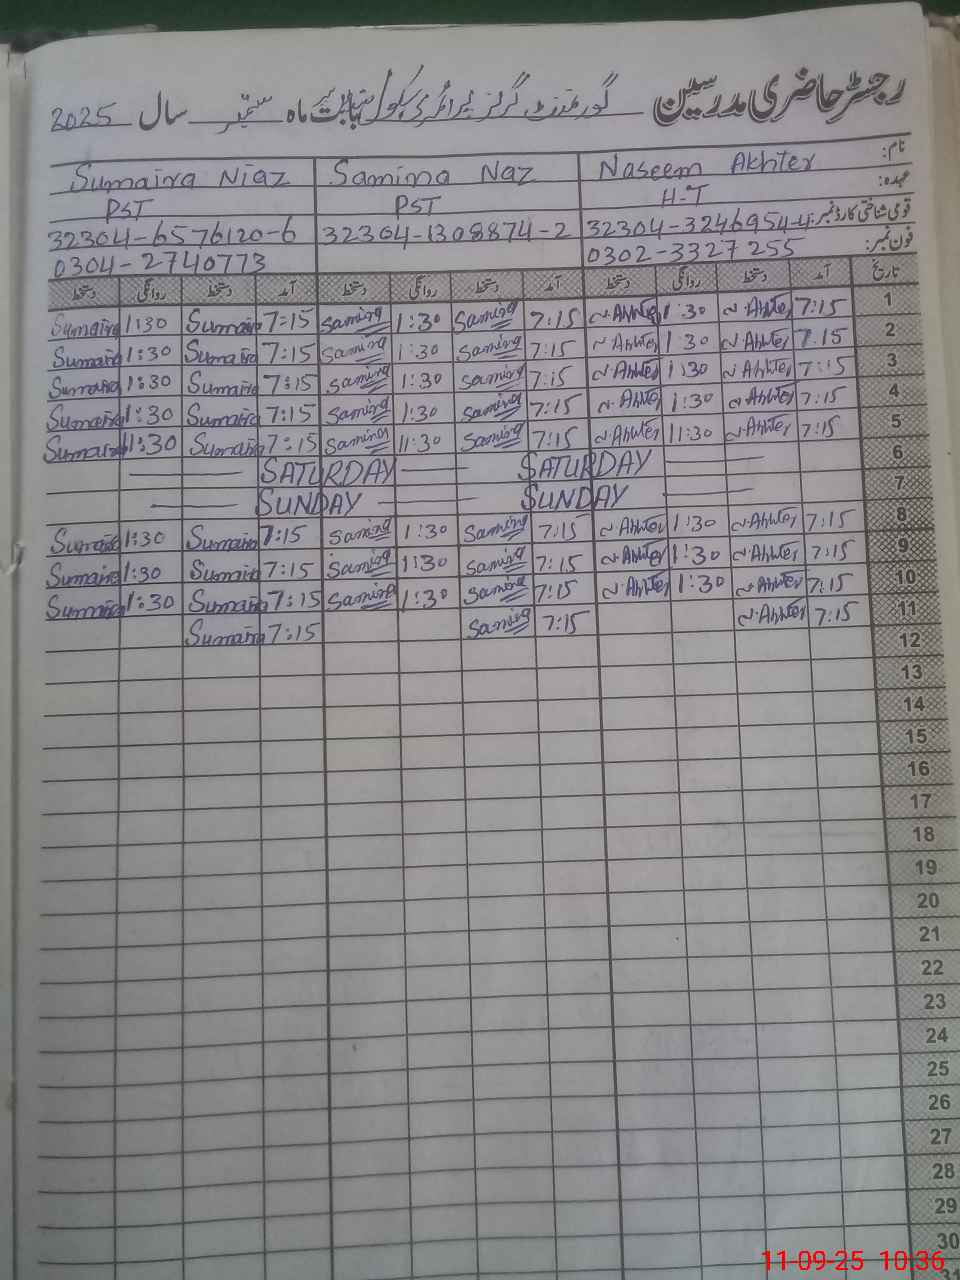 رجسٹر حاضری مدرسین گورنمنٹ گرلز پرائمری سکول بابت ماہ ستمبر سال 2025
نام: Naseem Akhter Samina Naz Sumaira Niaz
عہدہ: H-T PST PST
قومی شناختی کارڈ نمبر: 32304-3246954-4 32304-1308874-2 32304-6576120-6
فون نمبر: 0302-3327255 0304-2740773
تاریخ آمد دستخط روانگی دستخط آمد دستخط روانگی دستخط آمد دستخط روانگی دستخط
1 7:15 N.Akhter 1:30 N.Akhter 7:15 Samina 1:30 Samina 7:15 Sumaira 1:30 Sumaira
2 7:15 N.Akhter 1:30 N.Akhter 7:15 Samina 1:30 Samina 7:15 Sumaira 1:30 Sumaira
3 7:15 N.Akhter 1:30 N.Akhter 7:15 Samina 1:30 Samina 7:15 Sumaira 1:30 Sumaira
4 7:15 N.Akhter 1:30 N.Akhter 7:15 Samina 1:30 Samina 7:15 Sumaira 1:30 Sumaira
5 7:15 N.Akhter 11:30 N.Akhter 7:15 Samina 11:30 Samina 7:15 Sumaira 11:30 Sumaira
6 SATURDAY SATURDAY
7 SUNDAY SUNDAY
8 7:15 N.Akhter 1:30 N.Akhter 7:15 Samina 1:30 Samina 7:15 Sumaira 1:30 Sumaira
9 7:15 N.Akhter 1:30 N.Akhter 7:15 Samina 1:30 Samina 7:15 Sumaira 1:30 Sumaira
10 7:15 N.Akhter 1:30 N.Akhter 7:15 Samina 1:30 Samina 7:15 Sumaira 1:30 Sumaira
11 7:15 N.Akhter 7:15 Samina 7:15 Sumaira
12
13
14
15
16
17
18
19
20
21
22
23
24
25
26
27
28
29
30
31
11-09-25 10:36